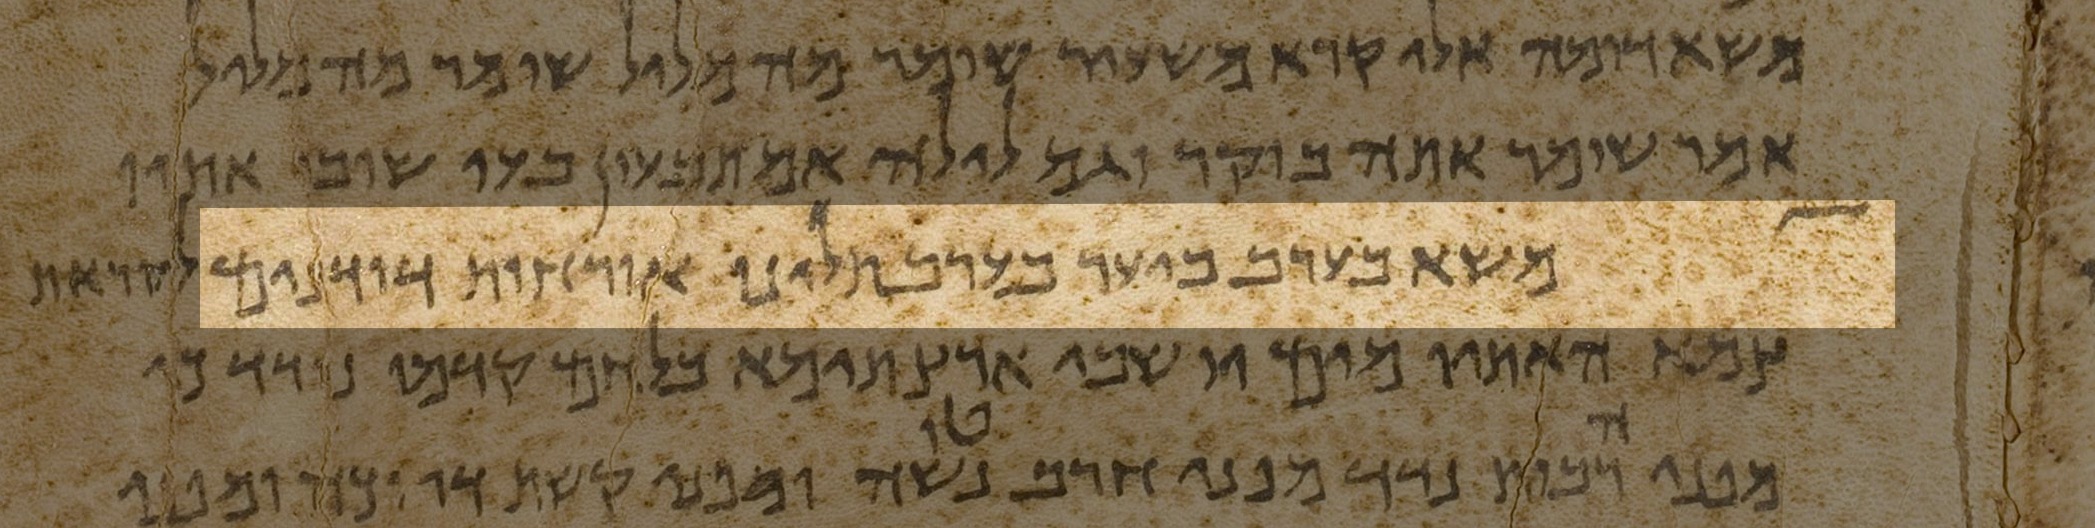 משא דומה אלי קורא משעיר שומר מה מליל שומר מה מליל
אמר שומר אתה בוקר וגם לילה אם תבעיון בעו שובו אתיו
משא בערב ביער בערב תלינו אורחות דודנים לקראת
צמא האתיו מים יושבי ארץ תימא בלחם קדמו נודד כי
מפני רבות נדד מפני חרב נטושה ומפני קשת דרוכה ומפני